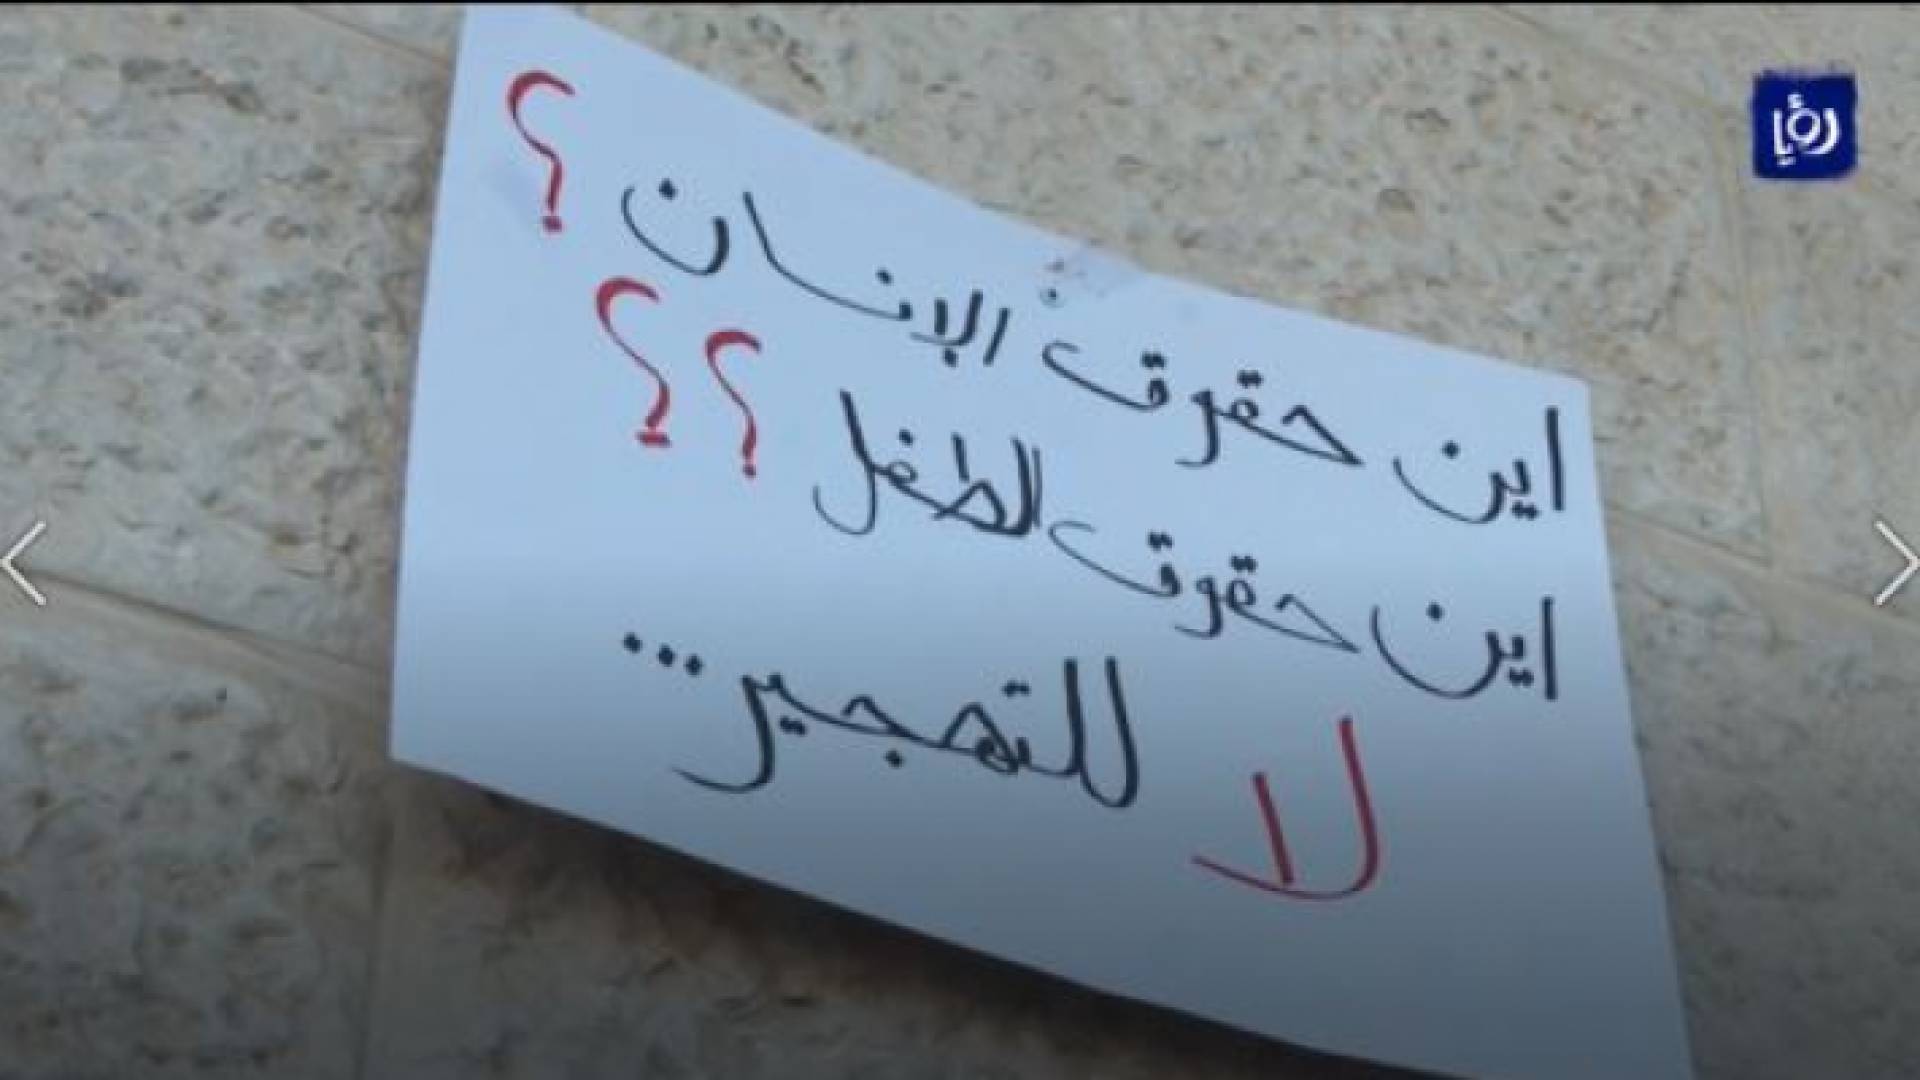 رؤيا
اين حقوق الإنسان ؟
اين حقوق الطفل ؟ ؟
لا للتهجير...